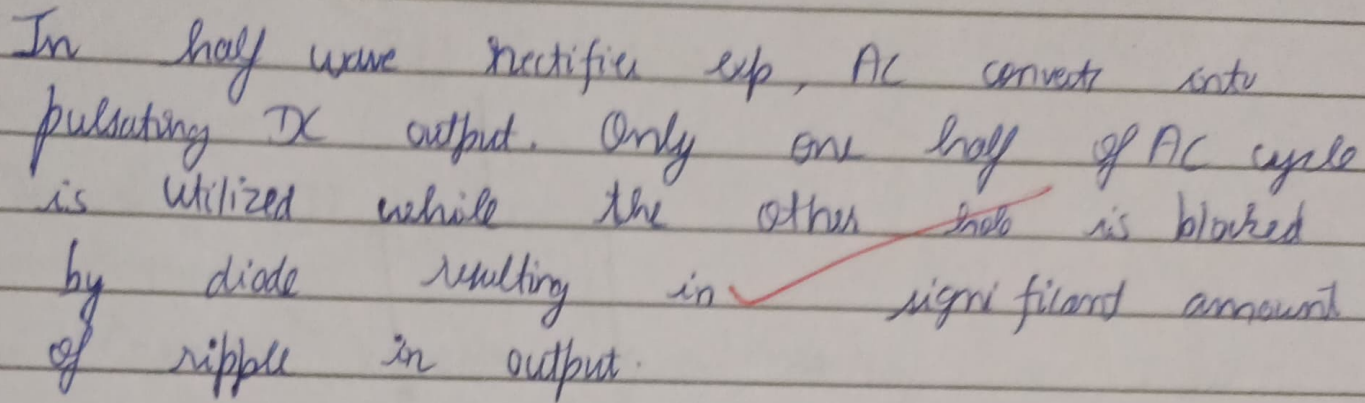 In half wave rectifier exp, AC converts into
pulsating DC output. Only one half of AC cycle
is utilized while the other is blocked
by diode resulting in significant amount
of ripple in output.